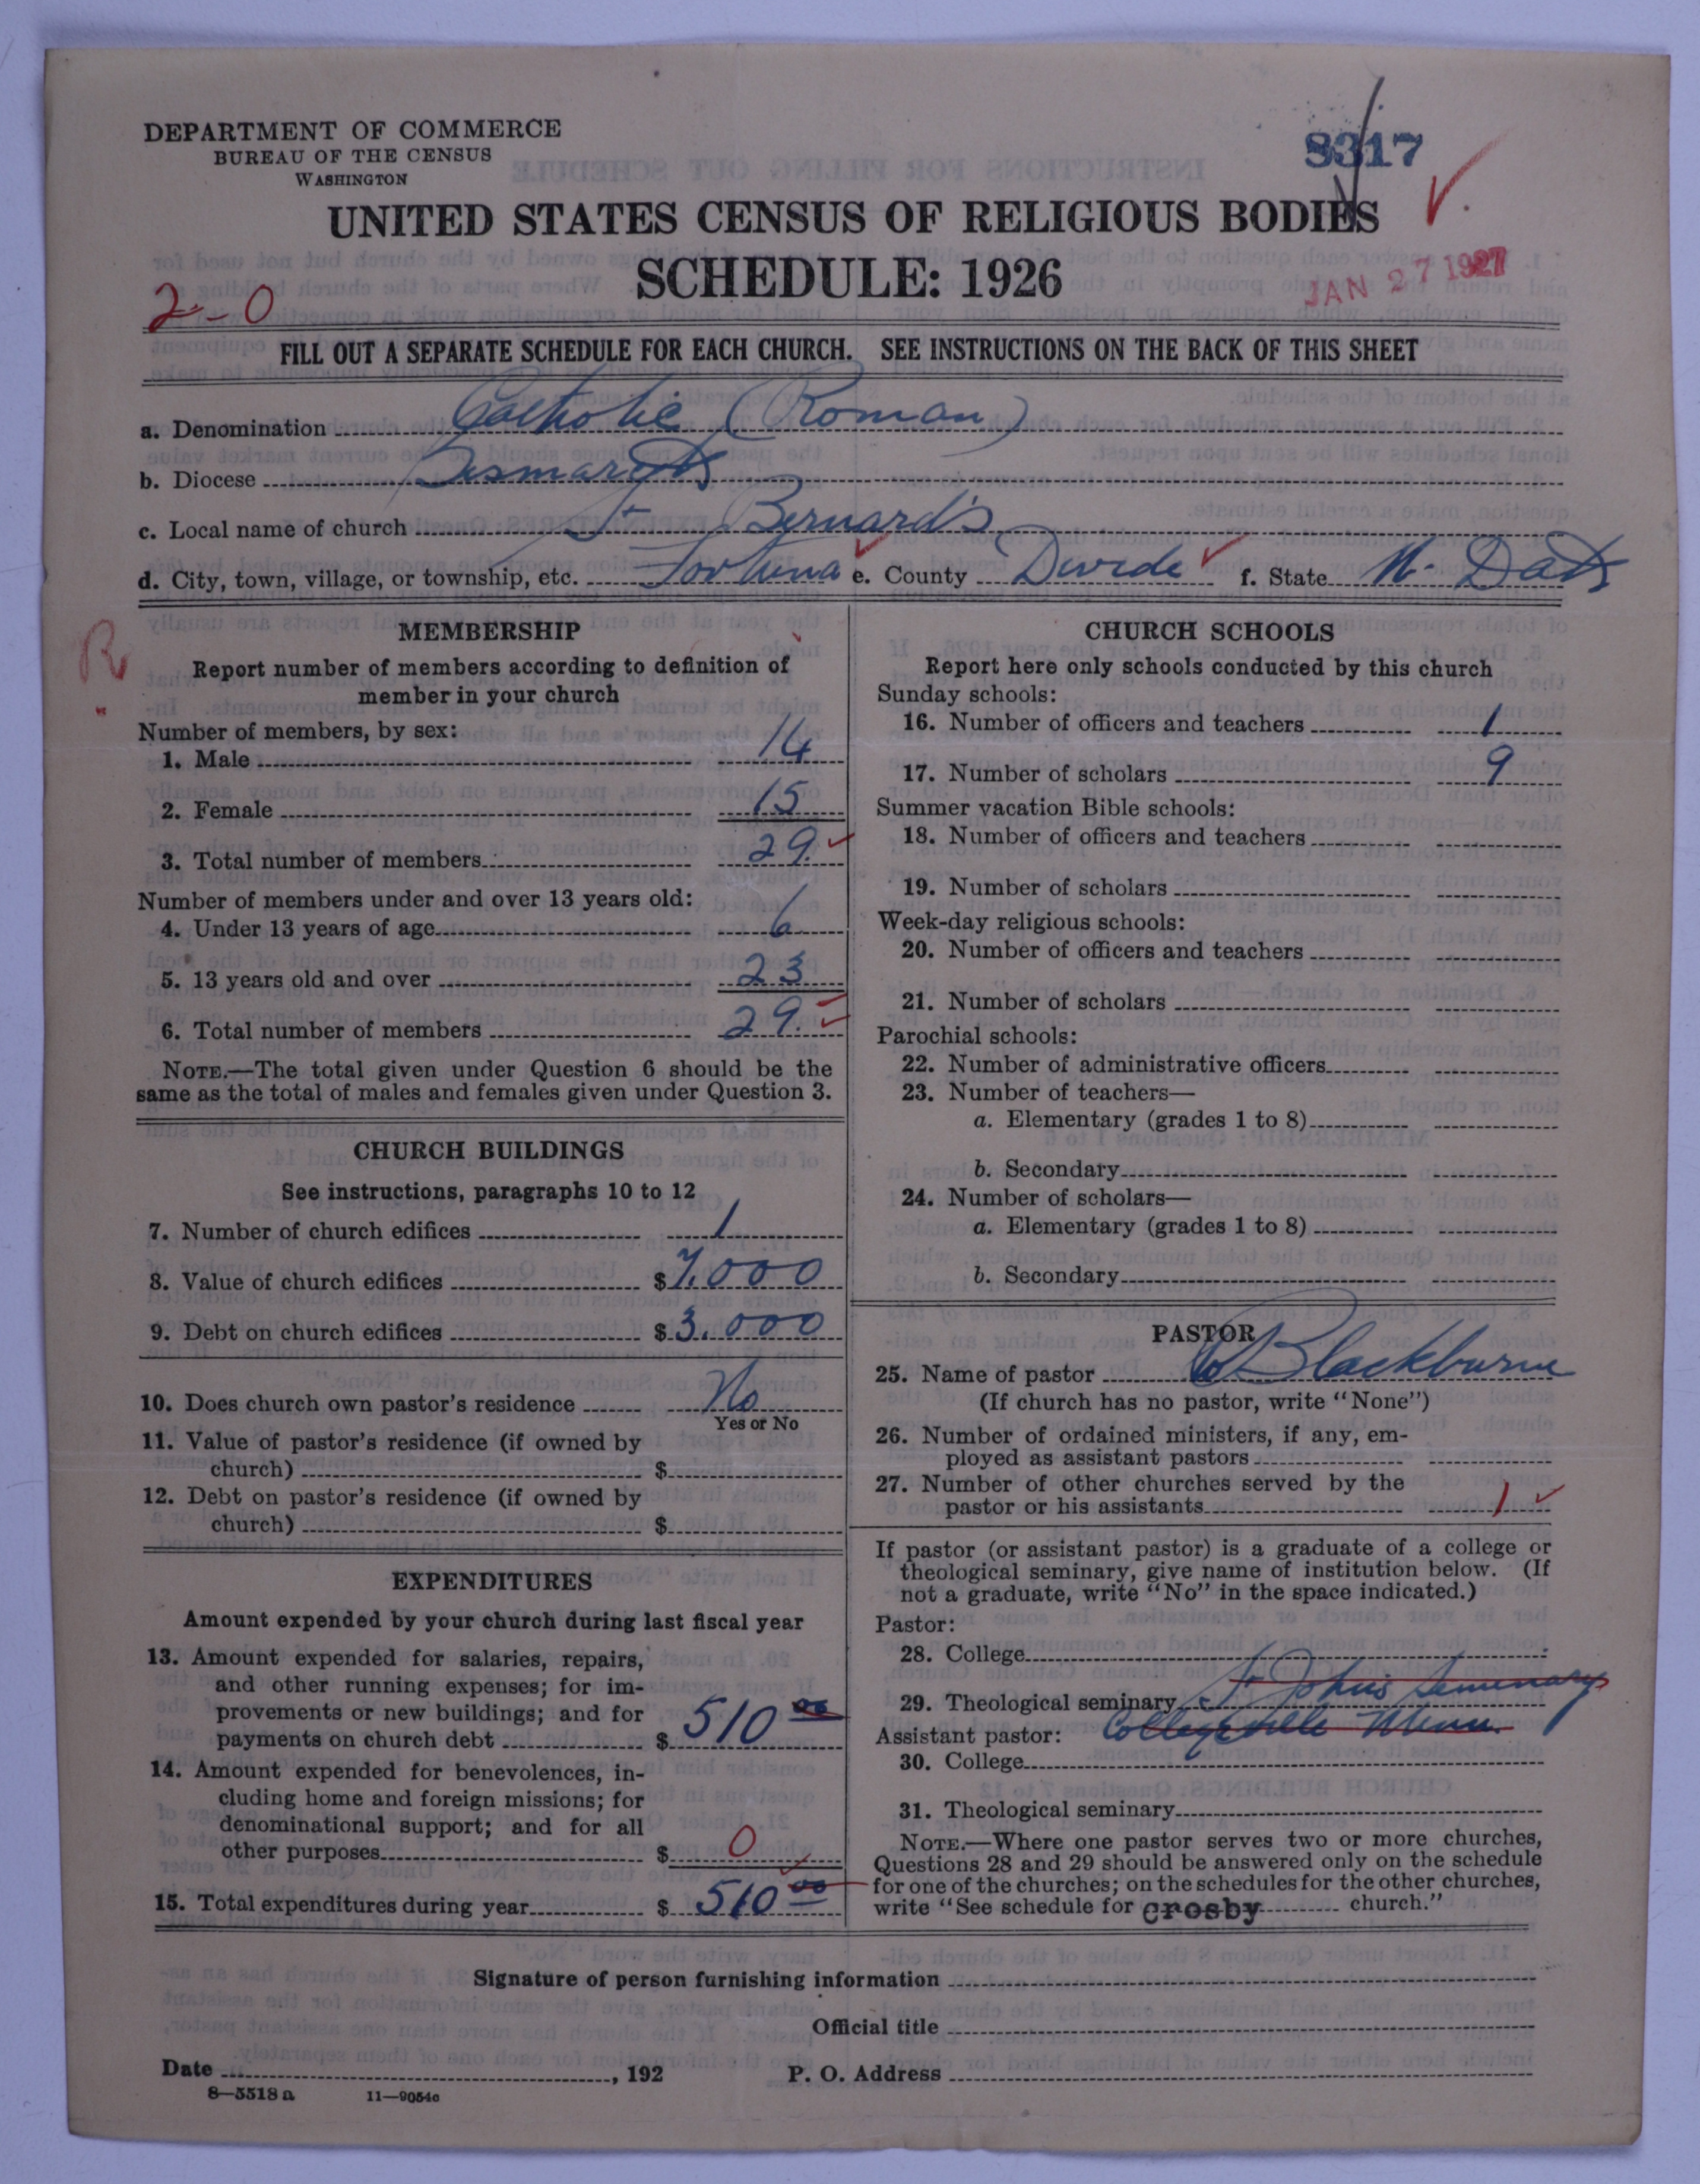 DEPARTMENT OF COMMERCE
BUREAU OF THE CENSUS
WASHINGTON
8317
UNITED STATES CENSUS OF RELIGIOUS BODIES
SCHEDULE: 1926
JAN 27 1927
2-0
FILL OUT A SEPARATE SCHEDULE FOR EACH CHURCH. SEE INSTRUCTIONS ON THE BACK OF THIS SHEET
a. Denomination Catholic (Roman)
b. Diocese
c. Local name of church St Bernard's
d. City, town, village, or township, etc. Fortuna e. County Divide f. State N. Dak
R
MEMBERSHIP
Report number of members according to definition of
member in your church
Number of members, by sex:
1. Male 14
2. Female 15
3. Total number of members 29.
Number of members under and over 13 years old:
4. Under 13 years of age 6
5. 13 years old and over 23
6. Total number of members 29.
NOTE.—The total given under Question 6 should be the
same as the total of males and females given under Question 3.
CHURCH BUILDINGS
See instructions, paragraphs 10 to 12
7. Number of church edifices 1
8. Value of church edifices $7,000
9. Debt on church edifices $3,000
10. Does church own pastor's residence No
Yes or No
11. Value of pastor's residence (if owned by
church) $
12. Debt on pastor's residence (if owned by
church) $
EXPENDITURES
Amount expended by your church during last fiscal year
13. Amount expended for salaries, repairs,
and other running expenses; for im-
provements or new buildings; and for
payments on church debt $ 510 00
14. Amount expended for benevolences, in-
cluding home and foreign missions; for
denominational support; and for all
other purposes $ 0
15. Total expenditures during year $ 510 00
CHURCH SCHOOLS
Report here only schools conducted by this church
Sunday schools:
16. Number of officers and teachers 1
17. Number of scholars 9
Summer vacation Bible schools:
18. Number of officers and teachers
19. Number of scholars
Week-day religious schools:
20. Number of officers and teachers
21. Number of scholars
Parochial schools:
22. Number of administrative officers
23. Number of teachers—
a. Elementary (grades 1 to 8)
b. Secondary
24. Number of scholars—
a. Elementary (grades 1 to 8)
b. Secondary
PASTOR
25. Name of pastor Blackburn
(If church has no pastor, write "None")
26. Number of ordained ministers, if any, em-
ployed as assistant pastors
27. Number of other churches served by the
pastor or his assistants 1
If pastor (or assistant pastor) is a graduate of a college or
theological seminary, give name of institution below. (If
not a graduate, write "No" in the space indicated.)
Pastor:
28. College
29. Theological seminary St Johns Seminary
Collegeville Minn.
Assistant pastor:
30. College
31. Theological seminary
NOTE.—Where one pastor serves two or more churches,
Questions 28 and 29 should be answered only on the schedule
for one of the churches; on the schedules for the other churches,
write "See schedule for crosby church."
Signature of person furnishing information
Official title
Date , 192 P. O. Address
8-5518 a 11-9054c